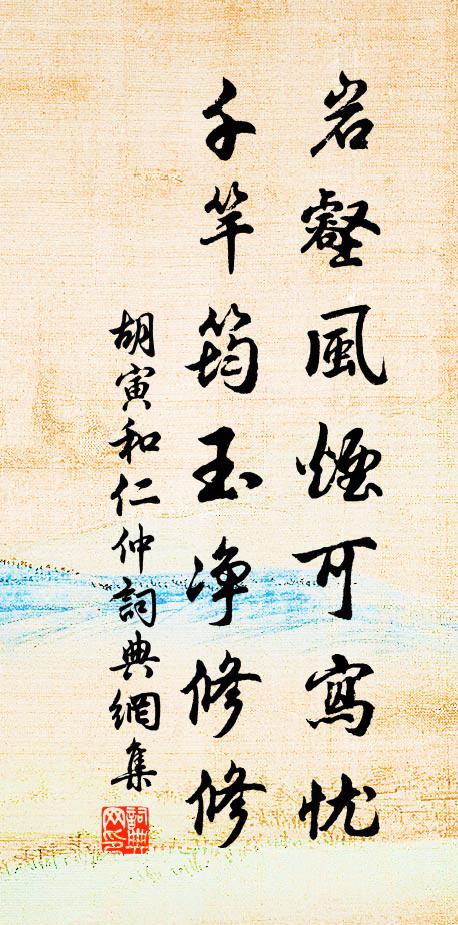 岩壑風煙可寫忧
千竿筠玉净修修
胡寅和仁仲詞典網集